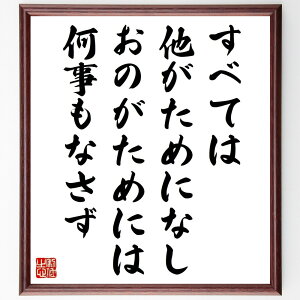 すべては
他がためになし
おのがためには
何事もなさず